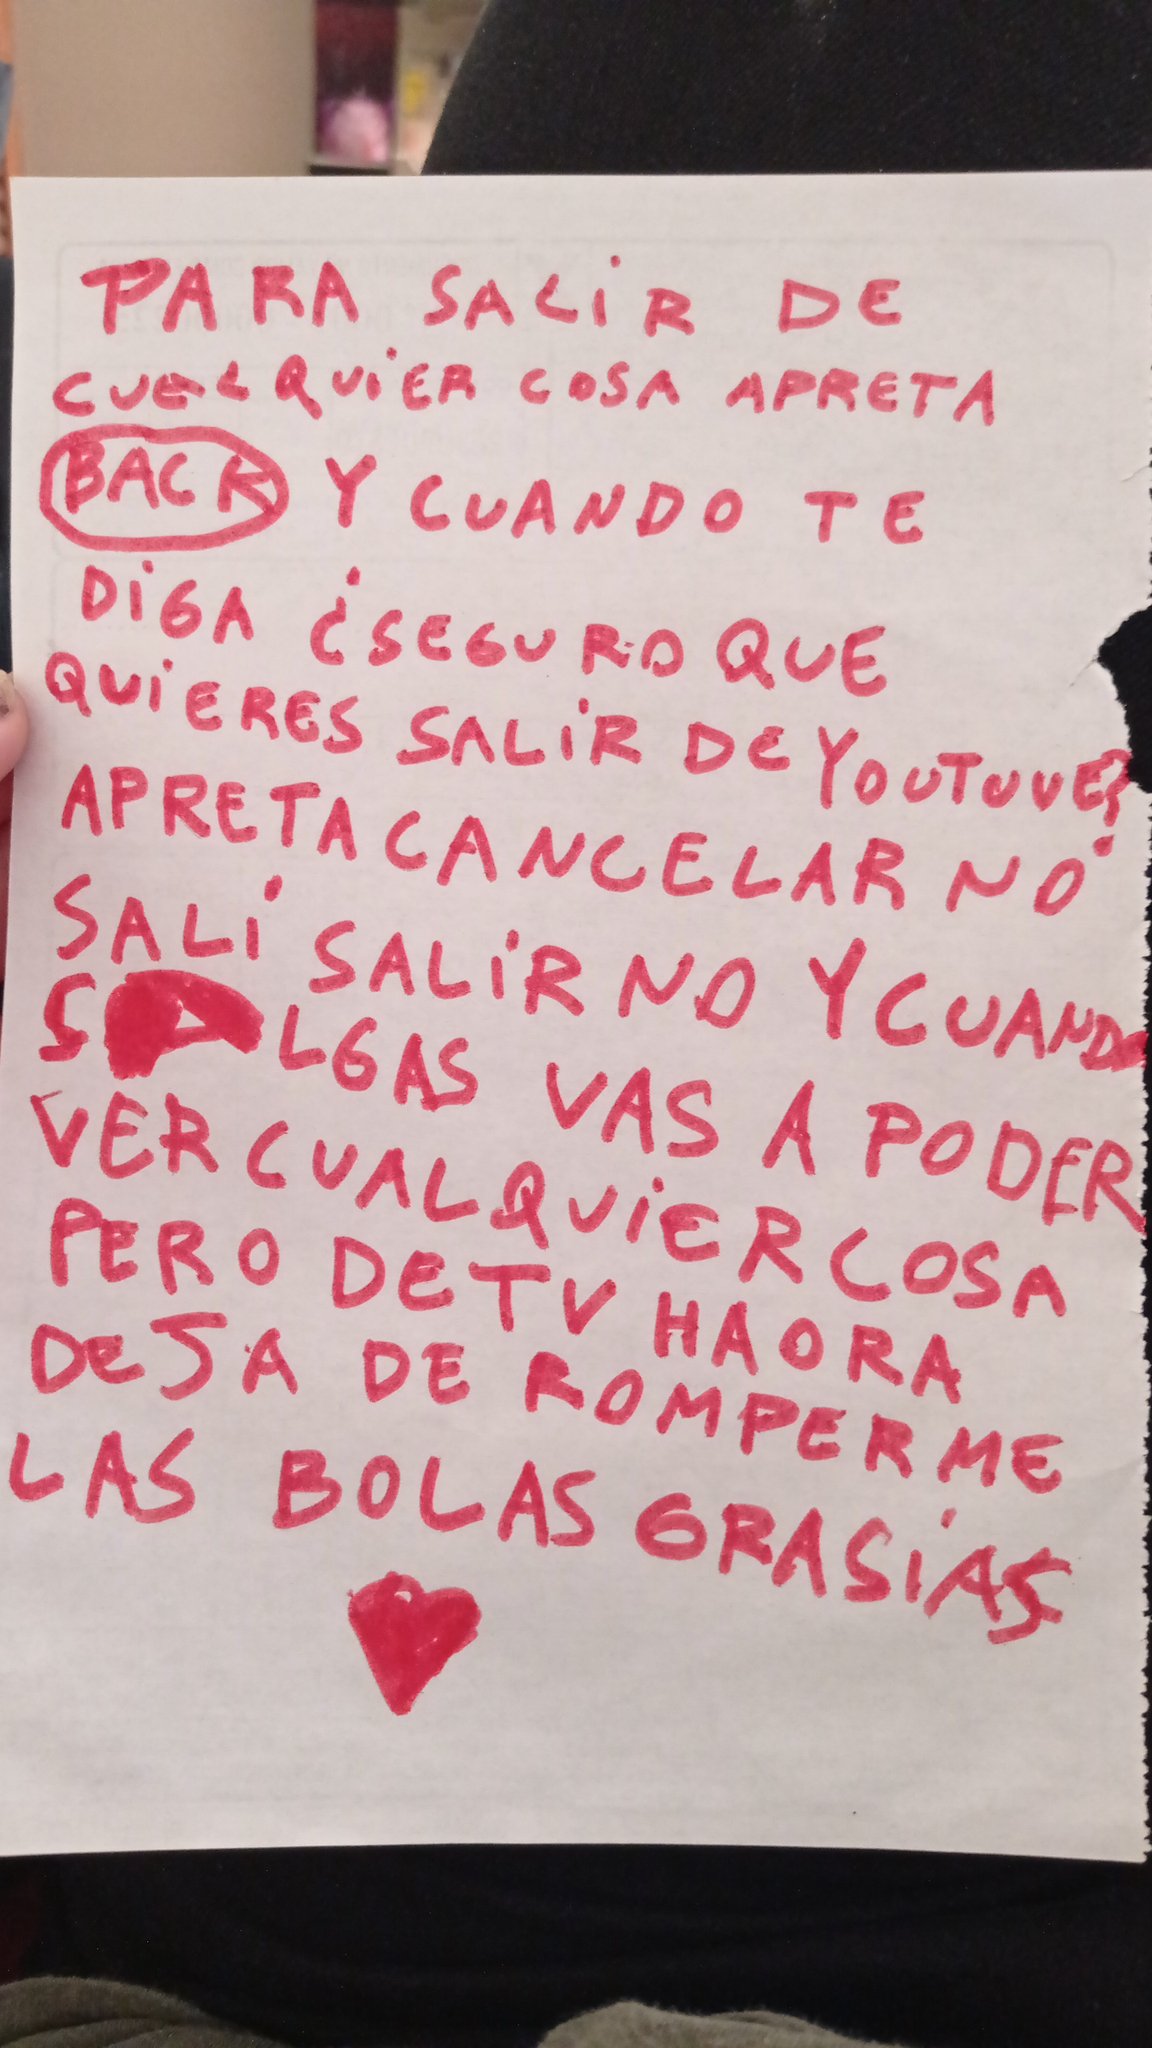 PARA SALIR DE
CUALQUIER COSA APRETA
BACK Y CUANDO TE
DIGA ¿SEGURO QUE
QUIERES SALIR DE YOUTUVE?
APRETA CANCELAR NO
SALÍ SALIR NO Y CUANDO
SALGAS VAS A PODER
VER CUALQUIER COSA
PERO DE TV HAORA
DEJA DE ROMPERME
LAS BOLAS GRASIAS